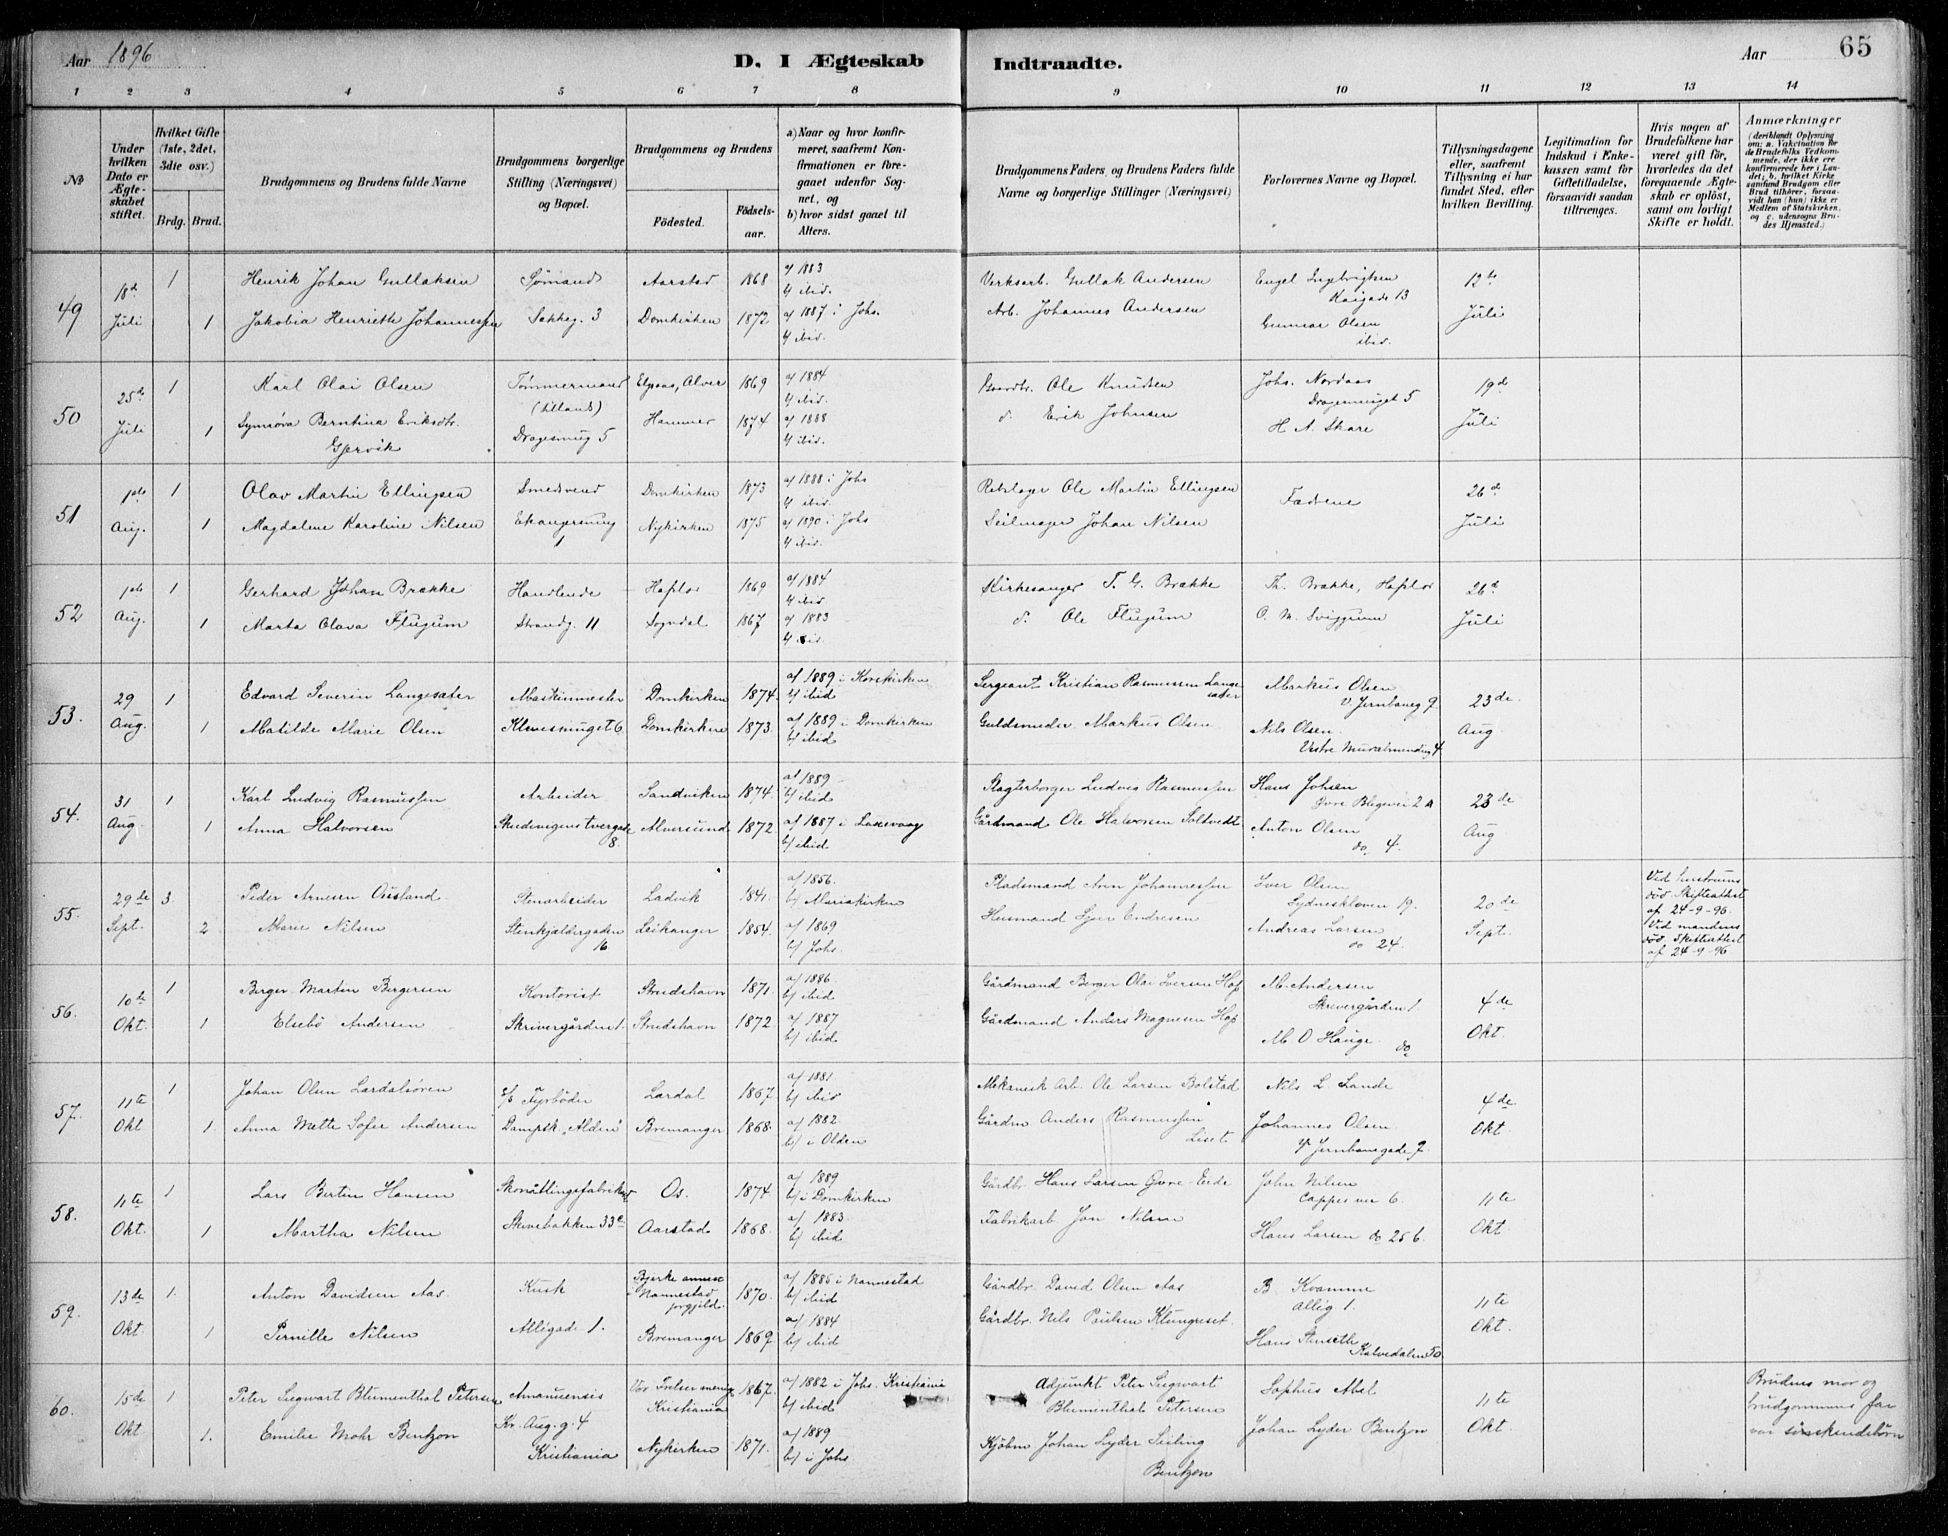 Aar 1896
D. I Ægteskab Indtraadte.
Aar 65
1 2 3 4 5 6 7 8 9 10 11 12 13 14
No
Under hvilken Dato er Ægteskabet stiftet.
Hvilket Gifte (1ste, 2det, 3die osv.)
Brdg. Brud.
Brudgommens og Brudens fulde Navne
Brudgommens borgerlige Stilling (Næringsvei) og Bopæl.
Brudgommens og Brudens
Födested. Födselsaar.
a) Naar og hvor konfirmeret, saafremt Konfirmationen er foregaaet udenfor Sognet, og
b) hvor sidst gaaet til Alters.
Brudgommens Faders, og Brudens Faders fulde Navne og borgerlige Stillinger (Næringsvei)
Forlovernes Navne og Bopæl.
Tillysningsdagene eller, saafremt Tillysning ei har fundet Sted, efter hvilken Bevilling.
Legitimation for Indskud i Enkekassen samt for Giftetilladelse, forsaavidt saadan tiltrænges.
Hvis nogen af Brudefolkene har været gift för, hvorledes da det foregaaende Ægteskab er oplöst, samt om lovligt Skifte er holdt.
Anmærkninger
(deriblandt Oplysning om: a. Vakcination for de Brudefolks Vedkommende, der ikke ere konfirmerede her i Landet; b. hvilket Kirkesamfund Brudgom eller Brud tilhörer, forsaavidt han (hun) ikke er Medlem af Statskirken, og c. udensogns Brudes Hjemsted.)
49 18de Juli 1 Henrik Johan Gullaksen Sømand Aarstad 1868 a/ 1883 b/ ibid. Verksarb. Gullak Andersen Engel Ingebrigtsen Kaigade 13 12te Juli
1 Jakobia Henriette Johannessen 3 Domkirken 1872 a/ 1887 i Johs. b/ ibid. Arb. Johannes Andersen Gunnar Olsen ibid.
50 25de Juli 1 Karl Olai Olsen Tømmermand Alver 1869 a/ 1884 b/ ibid. Gaardbr. Ole Knudsen Johs. Nordaas Dragesmuget 5 19de Juli
1 Synnöva Berntina Eriksdtr. Gjervik Dragesmug 5 Hammer 1874 a/ 1888 b/ ibid. d. Erik Johnsen H A. Skare
51 1ste Aug. 1 Olav Martin Ellingsen Smedsvend Domkirken 1873 a/ 1888 i Johs b/ ibid. Rebslager Ole Martin Ellingsen Fædrene 26de Juli
1 Magdalene Karoline Nilsen 1 Nykirken 1875 a/ 1890 i Johs b/ ibid. Seilmager Johan Nilsen
52 1ste Aug. 1 Gerhard Johan Brække Handlende Hafslo 1869 a/ 1884 b/ ibid. Kirkesanger T. G. Brække Th. Brække, Hafslo 26de Juli
1 Marta Olava Flugum Strandg. 11 Sogndal 1867 a/ 1883 b/ ibid. d. Ole Flugum O. M. Sviggum
53. 29 Aug. 1 Edvard Severin Langesæter Maskinmester Domkirken 1874. a/ 1889 i Korskirken b/ ibid Sergeant Kristian Rasmussen Langesæter Markus Olsen v. Jernbaneg 9 23de Aug.
1 Matilde Marie Olsen Klevesmuget 6 Domkirken 1873. a/ 1889 i Domkirken b/ ibid Guldsmeder Markus Olsen Nils Olsen. Vestre Muralmendig 4.
54. 31 Aug. 1 Karl Ludvig Rasmussen Arbeider Sandviken 1874. a/ 1889 b/ ibid Slagterborger Ludvig Rasmussen Hans Johsen Øvre Blegevei 2 a 23de Aug
1 Anna Halvorsen Skudevigens tvergade 8. Alversund 1872. a/ 1887 i Laxevaag b/ ibid Gårdmand Ole Halvorsen Soltvedt Anton Olsen do 4.
55. 29de Sept. 3. Peder Arnesen Ousland Stenarbeider Ladvik 1841. a/ 1856. b/ Mariakirken Pladsmand Arn Johannessen Iver Olsen Sydneskleven 19. 20de Sept. Vid hustruens död. Skifteattest af 24-9-96.
2 Marie Nilsen Stenkjældergaden 16 Leikanger 1854. a/ 1869 b/ Johs. Husmand Sjur Endresen Andreas Larsen do 24. Vid mandens död. Skifteattest af 24-9-96
56. 10de Okt. 1 Berger Martin Bergersen Kontorist Strudshavn 1871. a/ 1886 b/ ibid Gårdmand Berger Olai Iversen Hop M. Andersen Skrivergården 1 4de Okt.
1 Elsebö Andersen Skrivergården 1. Strudshavn 1872. a/ 1887 b/ ibid Gårdmand Anders Magnesen Hop M O Hauge. do
57. 11te Okt 1 Johan Olsen Lærdalsören Fyrböder Lærdal 1867. a/ 1881 b/ ibid Mekanisk Arb. Ole Larsen Bolstad Nils L. Lande 4de Okt.
1. Anna Mette Sofie Andersen Dampsk. "Alden" Bremanger 1868. a/ 1882. b/ i Olden Gårdm Anders Rasmussen Liset. Johannes Olsen. Jernbanegade 7.
58. 11te Okt. 1 Lars Bertin Hansen Os. 1874. a/ 1889 b/ i Domkirken Gårdbr. Hans Larsen Øvre-Eide John Nilsen Cappes vei 6. 11te Okt.
1 Martha Nilsen Skivebakken 33c Aarstad 1868. a/ 1883. b/ ibid Fabrikarb Jon Nilsen Hans Larsen do 25 b.
59. 13de Okt. 1. Anton Davidsen Aas. Kusk Bjerke annex i Nannestad prgjeld. 1870. a/ 1885 i Nannestad b/ ibid Gårdbr. David Olsen Aas B. Kvamme Allég 1. 11te Okt.
1 Pernille Nilsen Allégade 1. Bremanger 1869. a/ 1884 b/ ibid Gårdbr. Nils Paulsen Klungeset. Hans Stenseth Kalvedalen 50
60. 15de Okt 1 Peter Siegwart Blumenthal Petersen Amanuensis Vor Frelser menig. Kristiania 1867. a/ 1882 i Johs. Kristiania b/ ibid Adjunkt Peter Siegwart Blumenthal Petersen Sophus Abel 11te Okt. Brudens mor og brudgommens far var söskendebörn
1. Emilie Mohr Bentzon Kr. Aug. g. 4 Kristiania Nykirken 1871. a/ 1889 b/ i Johs. Kjöbm Johan Lyder Seiling Bentzon Johan Lyder Bentzon